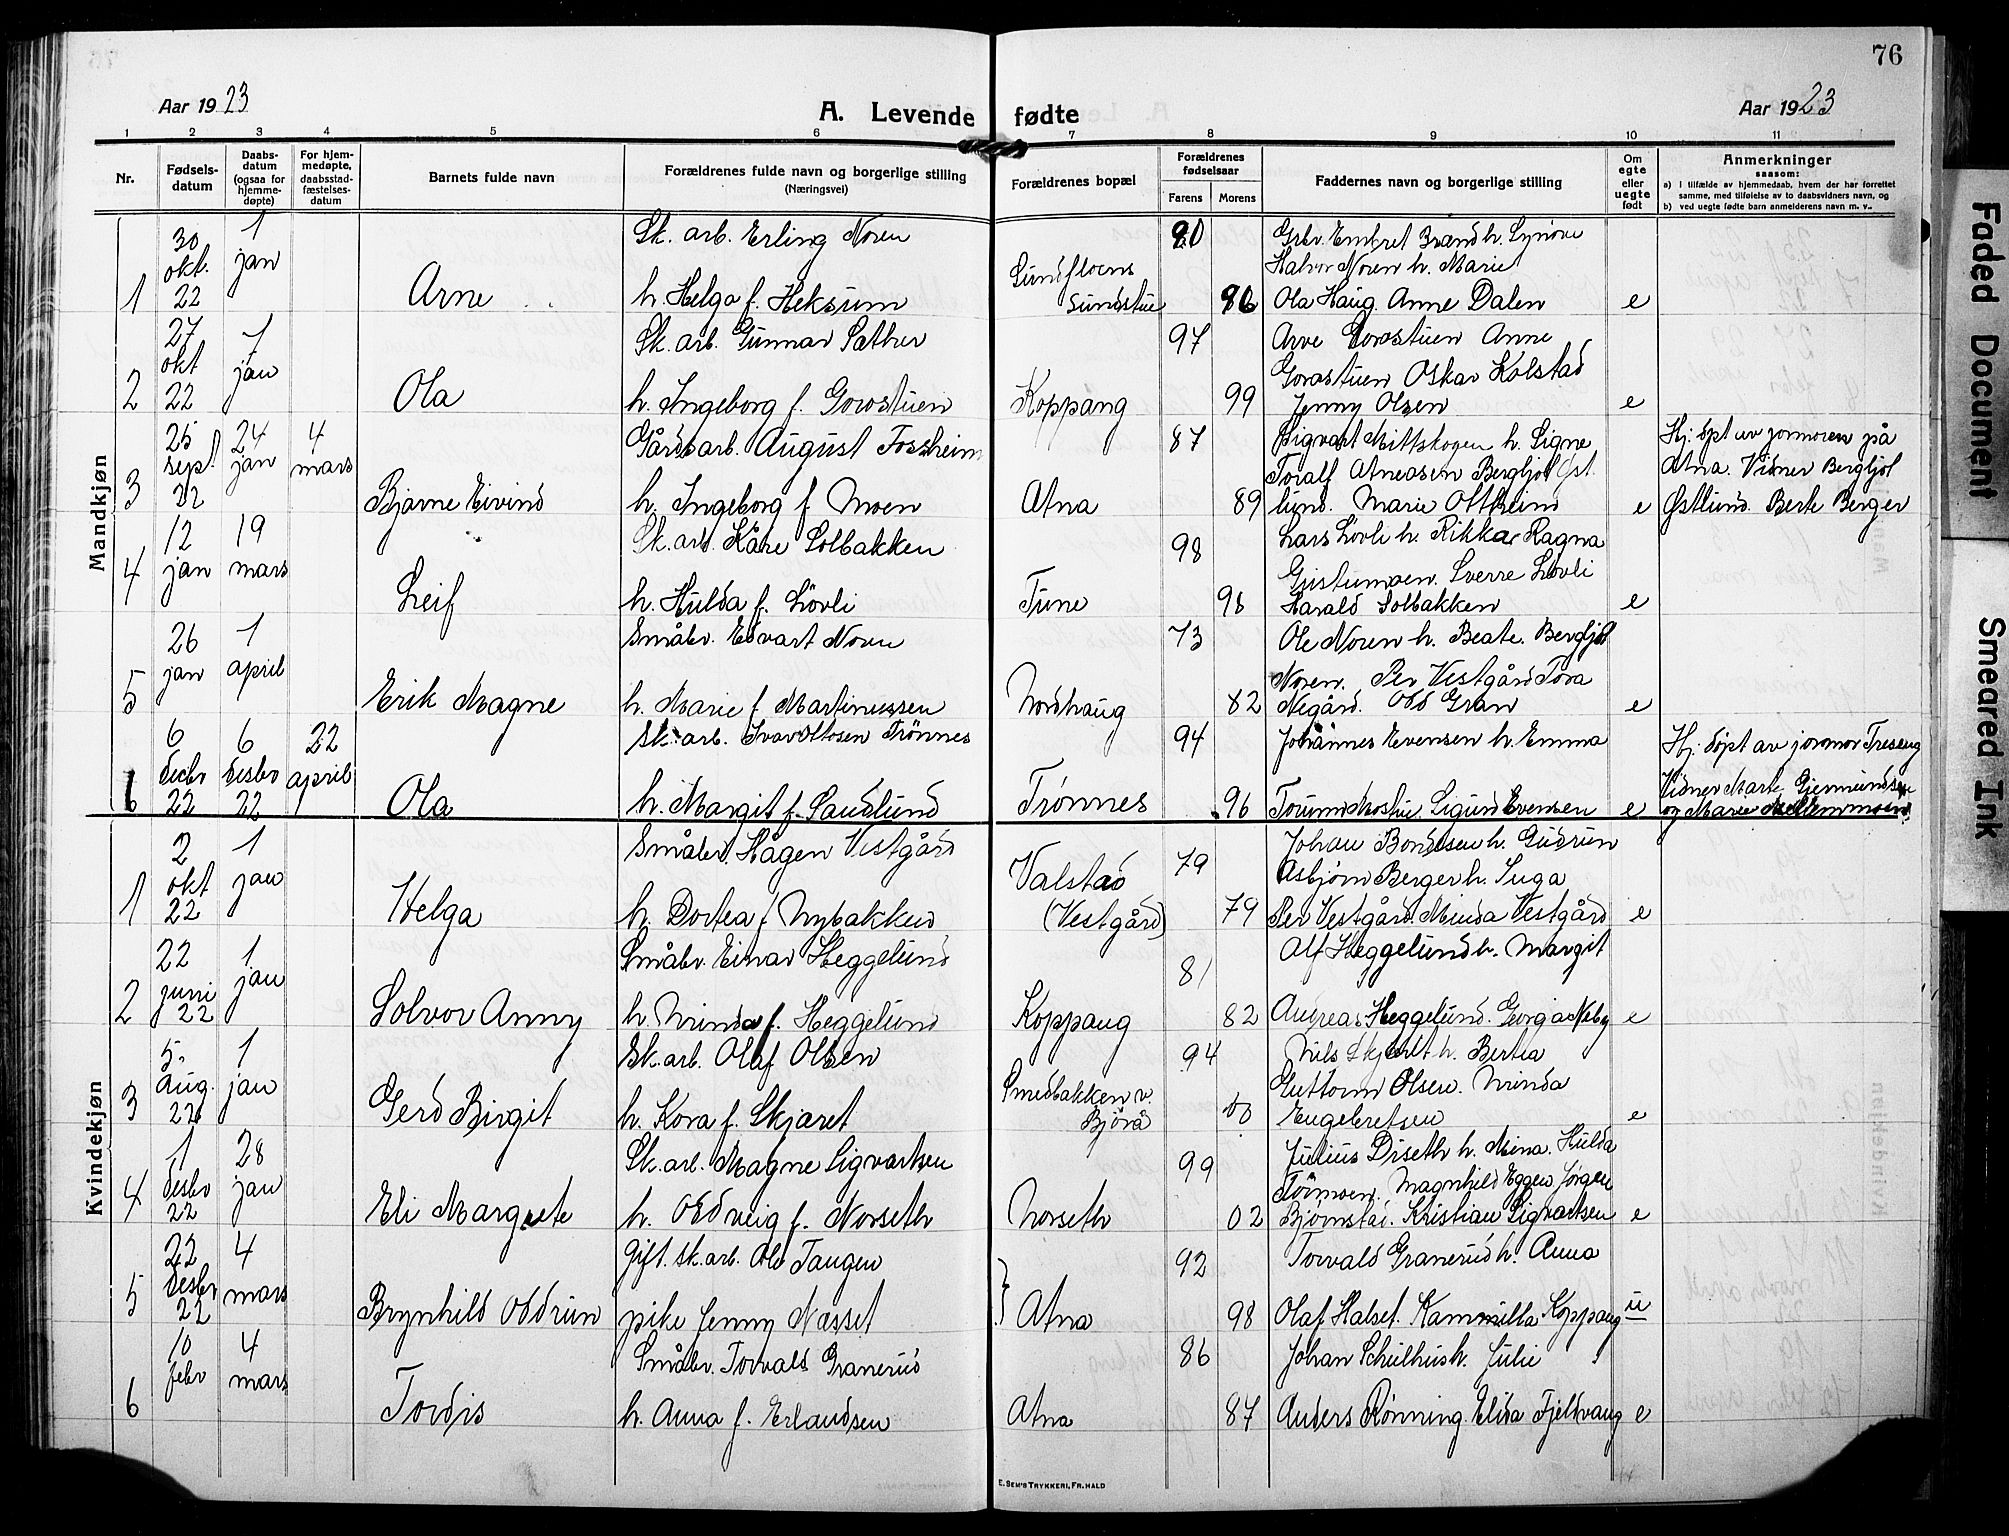 76
Aar 1923
A. Levende fødte
Aar 1923
1 2 3 4 5 6 7 8 9 10 11
Nr.
Fødsels-datum
Daabs-datum (ogsaa for hjemme-døpte)
For hjem-medøpte, daabsstad-fæstelses-datum
Barnets fulde navn
Forældrenes fulde navn og borgerlige stilling
(Næringsvei)
Forældrenes bopæl
Forældrenes fødselsaar
Farens Morens
Faddernes navn og borgerlige stilling
Om egte eller uegte født
Anmerkninger
saasom:
a) I tilfælde av hjemmedaab, hvem der har forrettet
samme, med tilføielse av to daabsvidners navn, og
b) ved uegte fødte barn anmelderens navn m. v.
Mandkjøn
1 30 okt. 22 1 jan Arne
Sk. arb. Erling Noren
h. Helga f. Heksum
Sundfloens
Sundstue
80 86
Grbr. Embret Brænd h. Synøve
Halvor Noren h. Marie
Ola Haug. Anne Dalen e
2 27 okt 22 1 jan Ola
Sk. arb. Gunnar Sæther
h. Ingeborg f. Gorostuen
Koppang
97 99
Arve Gorostuen Anne
Gorostuen Oskar Kolstad
Jenny Olsen e
3 25 sept 22 24 jan 4 mars Bjarne Eivind
Gårdsarb. August Fossheim
h. Ingeborg f Moen
Atna
87 89
Sigvart Mittskogen h. Signe
Toralf Atneosen Bergljot Øst
lund. Marie Ottheim e
Hj. døpt av jormoren på
Atna. Vidner Bergljot
Østlund. Berte Berger
4 12 jan 19 mars Leif
Sk. arb. Kåre Solbakken
h. Hulda f. Løvli
Tune
98 98
Lars Løvli h. Rikka Ragna
Gristumoen. Sverre Løvli
Harald Solbakken e
5 26 jan 1 april Erik Magne
Småbr. Edvart Noren
h. Marie f. Martinussen
Nordhaug
73 82
Ole Noren h. Beate. Bergljot
Noren. Per Vestgård Tora
Negård. Odd Gran e
6 6 decbr 22 6 desbr 22 22 april Ola
Sk. arb. Ivar Ottosen Trønnes
h. Margit f. Sandlund
Trønnes
94 96
Johannes Evensen h. Emma
Sigurd Evensen e
Hj. døpt av jormor Treseng
Vidner Marte Gjermundsen
og Marie Mellemmoen
Kvindekjøn
1 2 okt 22 1 jan Helga
Småbr. Hågen Vestgård
h. Dortea f Nybakken
Valstad
(Vestgård)
79 79
Johan Bondesen h. Gudrun
Asbjørn Berger h. Inga
Per Vestgård. Minda Vestgård e
2 22 juni 22 1 jan Solvor Anny
Småbr. Einar Heggelund
h. Minda f. Heggelund
Koppang
81 82
Alf Heggelund h. Margit
Andreas Heggelund. Georga Neby e
3 5. aug. 22 1 jan Gerd Birgit
Sk. arb. Olaf Olsen
h. Kora f. Skjæret
Smedbakken v.
Bjørå
94 00
Nils Skjæret h. Bertea
Guttorm Olsen. Minda
Engebretsen e
4 1 desbr 22 28 jan Eli Margrete
Sk. arb. Magne Sigvartsen
h. Oddveig f. Norseth
Norseth
99 02
Julius Diseth h. Mina. Hulda
Tørmoen. Magnhild Eggen Jørgen
Bjørnstad. Kristian Sigvartsen e
5 22 desbr 22 4 mars Brynhild Oddrun
Gift. sk. arb. Ole Tangen
pike Jenny Næsset
Atna
92 98
Torvald Granerud h. Anna
Olaf Halset. Kammilla Koppang u
6 10 febr 4 mars Tordis
Småbr. Torvald Granerud
h. Anna f. Erlandsen
Atna
86 87
Johan Schulhus h. Julie
Anders Rønning. Elida Fjeldvang e
E. Sem's Trykkeri, Fr.hald
Faded Document
Smeared Ink